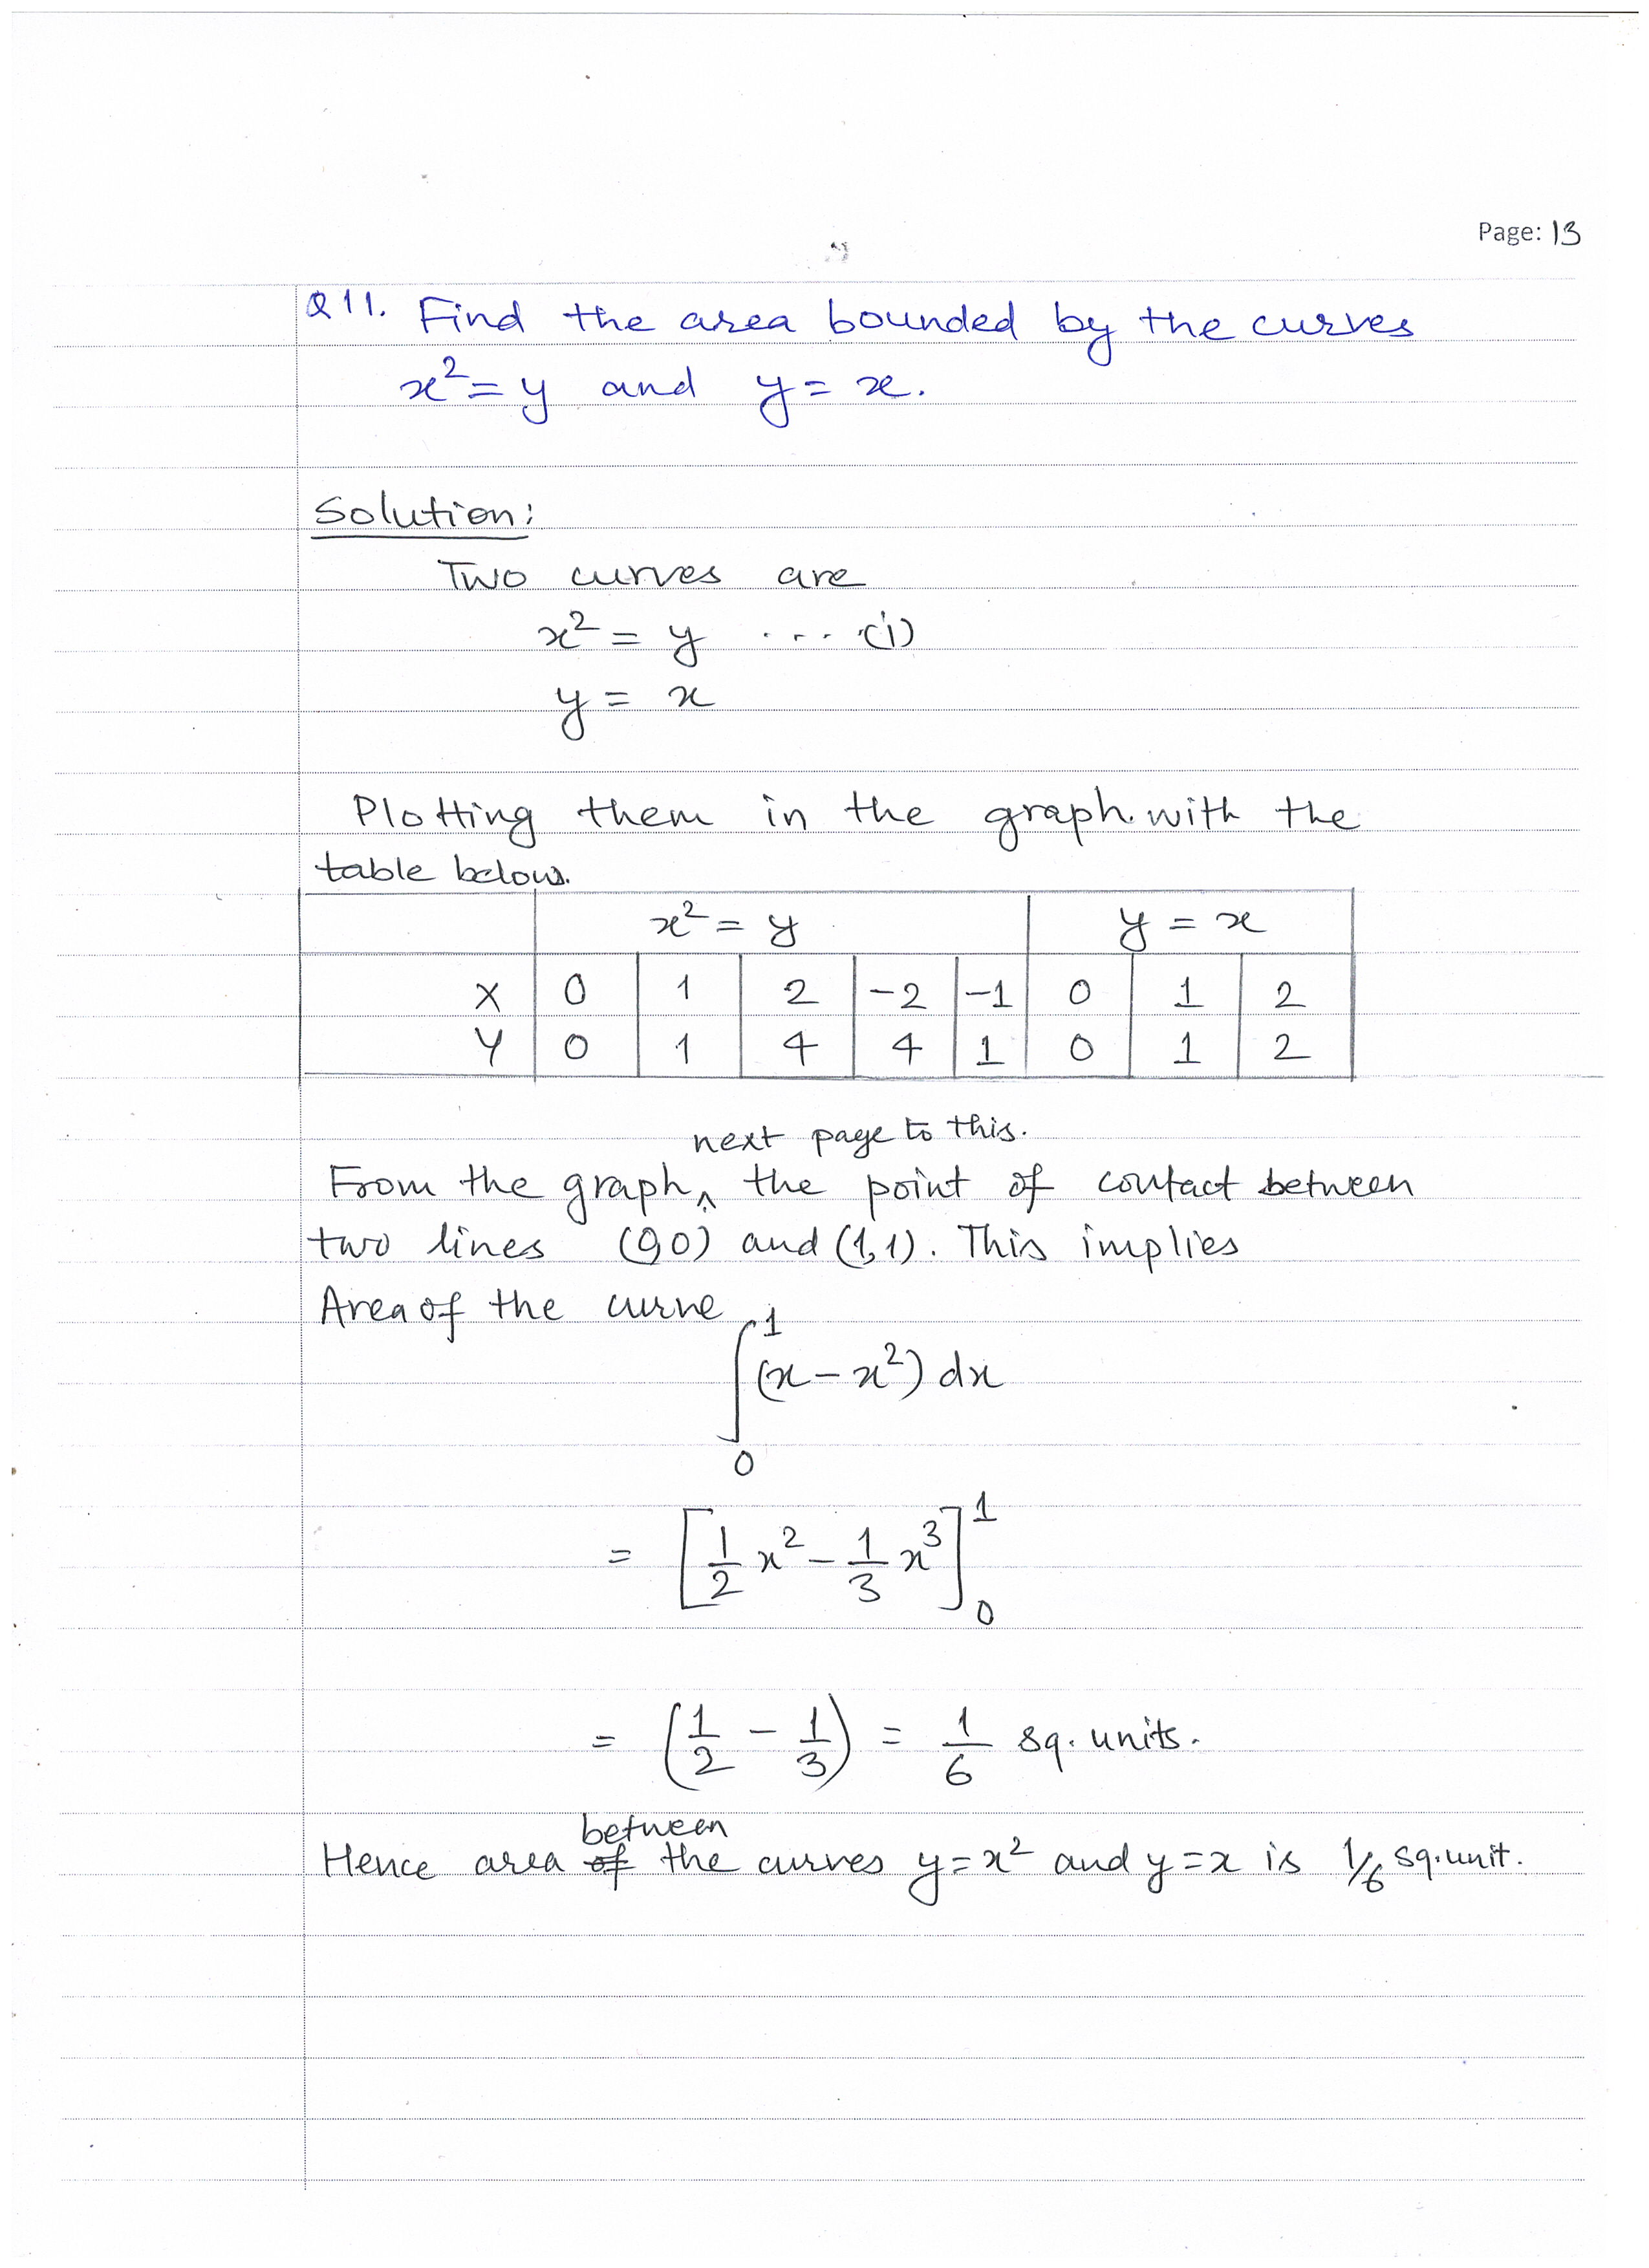 Page: 13
Q11. Find the area bounded by the curves
x² = y and y = x.
Solution:
Two curves are
x² = y .... (i)
y = x
Plotting them in the graph. with the
table below.
x² = y y = x
X 0 1 2 -2 -1 0 1 2
Y 0 1 4 4 1 0 1 2
next page to this.
From the graph ^ the point of contact between
two lines (0,0) and (1,1). This implies
Area of the curve
∫₀¹ (x - x²) dx
= [1/2 x² - 1/3 x³]₀¹
= (1/2 - 1/3) = 1/6 sq. units.
between
Hence area of the curves y = x² and y = x is 1/6 sq. unit.